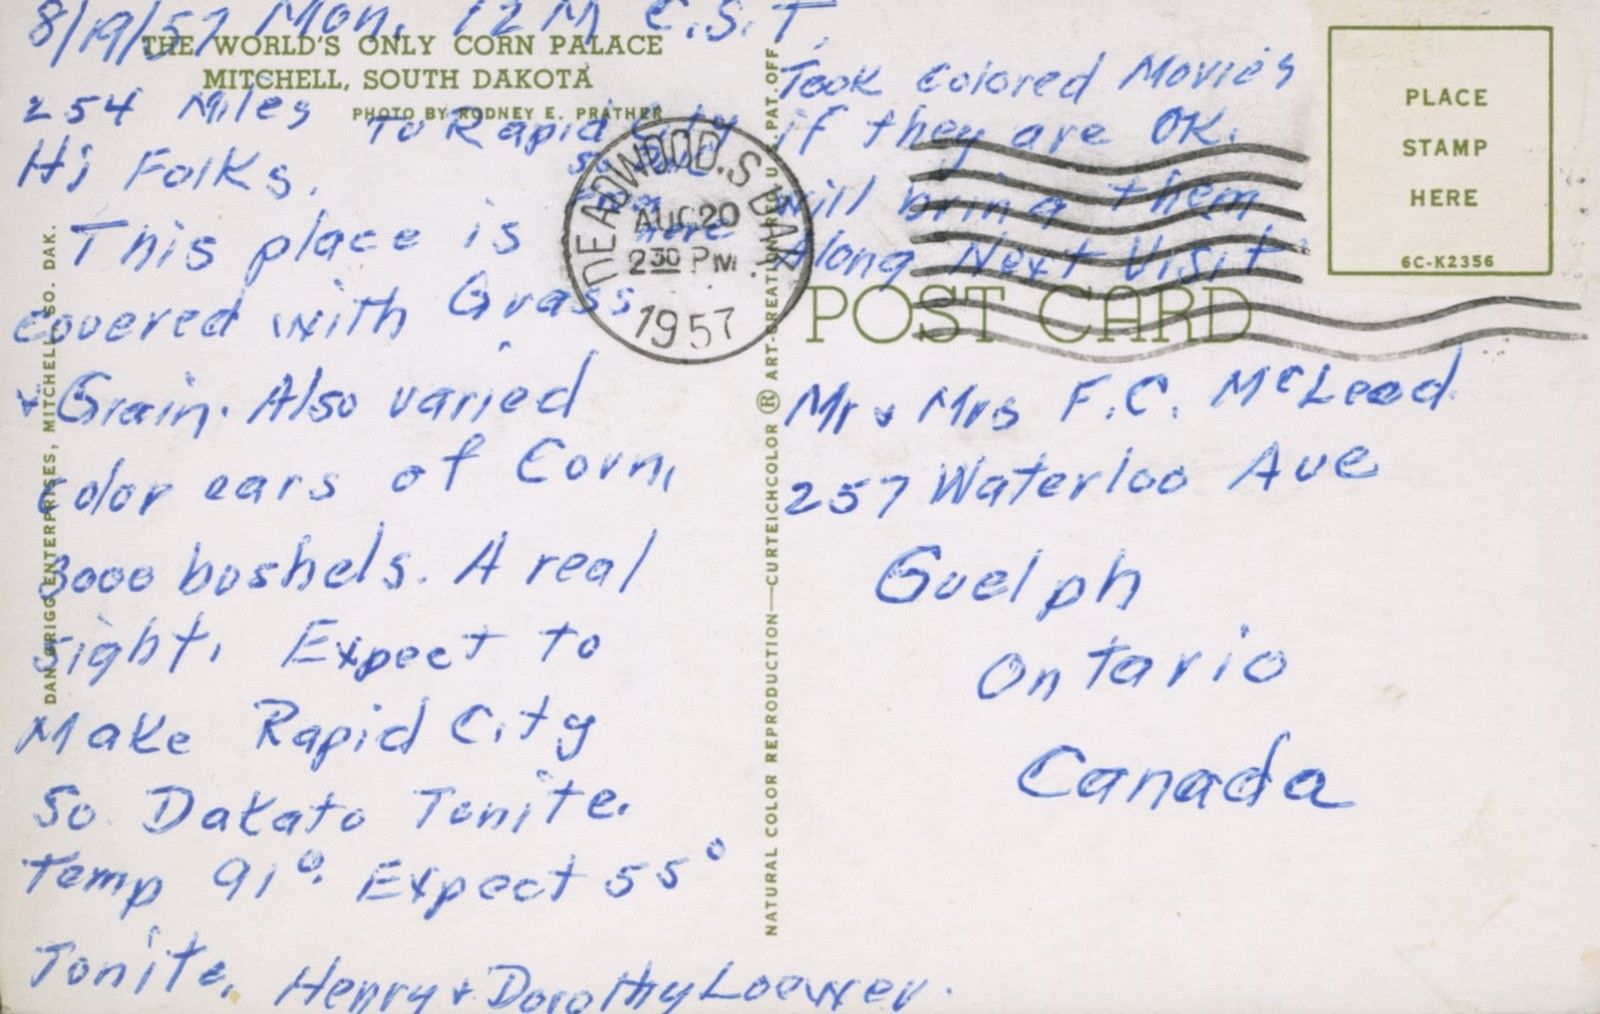 8/19/57 Mon. 12 M C.S.T.
THE WORLD'S ONLY CORN PALACE
MITCHELL, SOUTH DAKOTA
PHOTO BY RODNEY E. PRATHER
254 Miles To Rapid City
from
here
Hi Folks.
This place is
covered with Grass
+ Grain. Also varied
color ears of Corn,
3000 boshels. A real
sight. Expect to
Make Rapid City
So Dakato Tonite.
Temp 91°. Expect 55°
Tonite. Henry + Dorothy Loewer.
DEADWOOD, S. DAK.
AUG 20
2 30 PM
1957
Took colored Movies
if they are OK.
will bring them
along Next Visit
POST CARD
PLACE
STAMP
HERE
6C-K2356
Mr + Mrs F.C. McLeod
257 Waterloo Ave
Guelph
Ontario
Canada
ENTERPRISES, MITCHELL, SO. DAK.
NATURAL COLOR REPRODUCTION—CURTEICHCOLOR ® ART-CREATION REG. U.S. PAT. OFF